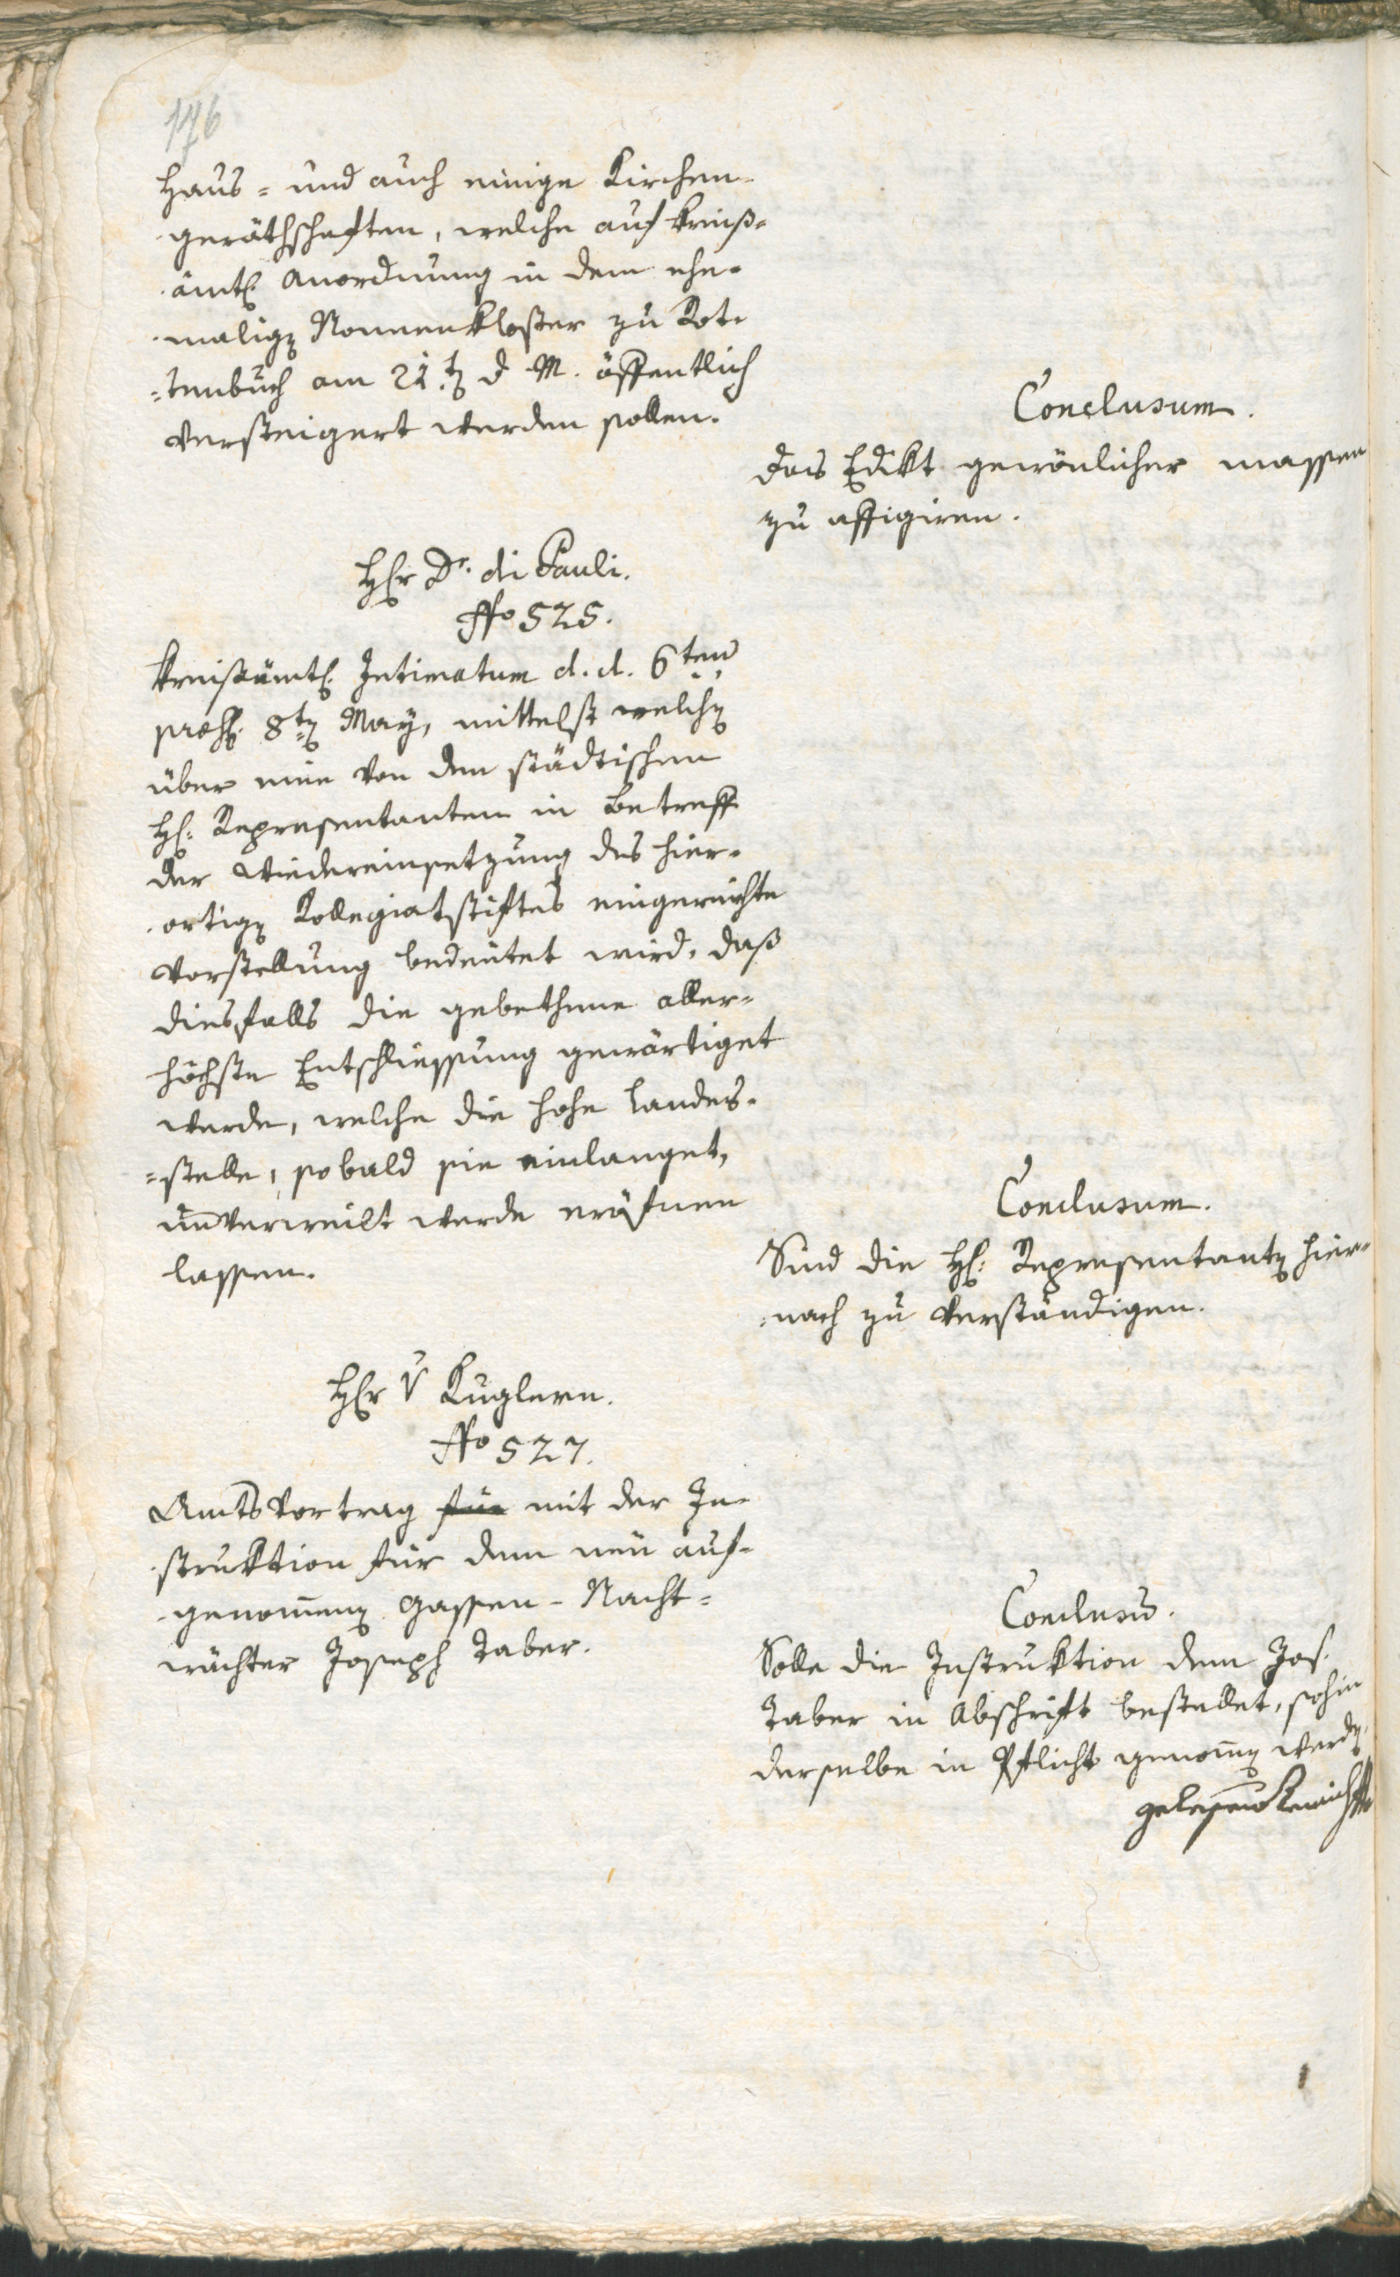 176
Haus- und auch einige Kirchen-
geräthschaften, welche auf kreiß-
ämtl. Anordnung in dem ehe-
maligen Nonnenkloster zu Rot-
=tenbuch am 21.ten d. M. öffentlich
versteigert werden sollen.
Conclusum.
Das Edikt gewönlicher massen
zu affigiren.
Herr Dr. di Pauli.
No 525.
Kreißämtl. Intimatum d. d. 6ten
præs. 8ten May, mittelst welchen
über eine von den städtischen
H. Representanten in Betreff
der Wiedereinsetzung des hier-
ortigen Kollegiatstiftes eingereichte
Vorstellung bedeutet wird, daß
diesfalls die gebethene aller-
höchste Entschliessung gewärtiget
werde, welche die hohe Landes-
=stelle, sobald sie einlanget,
unverweilt werde eröfnen
lassen.
Conclusum.
Sind die H. Representanten hier-
nach zu verständigen.
Herr v Kuglern.
No 527.
Amtsvortrag für mit der In-
struktion für dem neu auf-
genommenen Gassen-Nacht-
wächter Joseph Taber.
Conclusum.
Solle die Instruktion dem Jos.
Taber in Abschrift bestellet, sohin
derselbe in Pflicht genommen werden.
gelesen